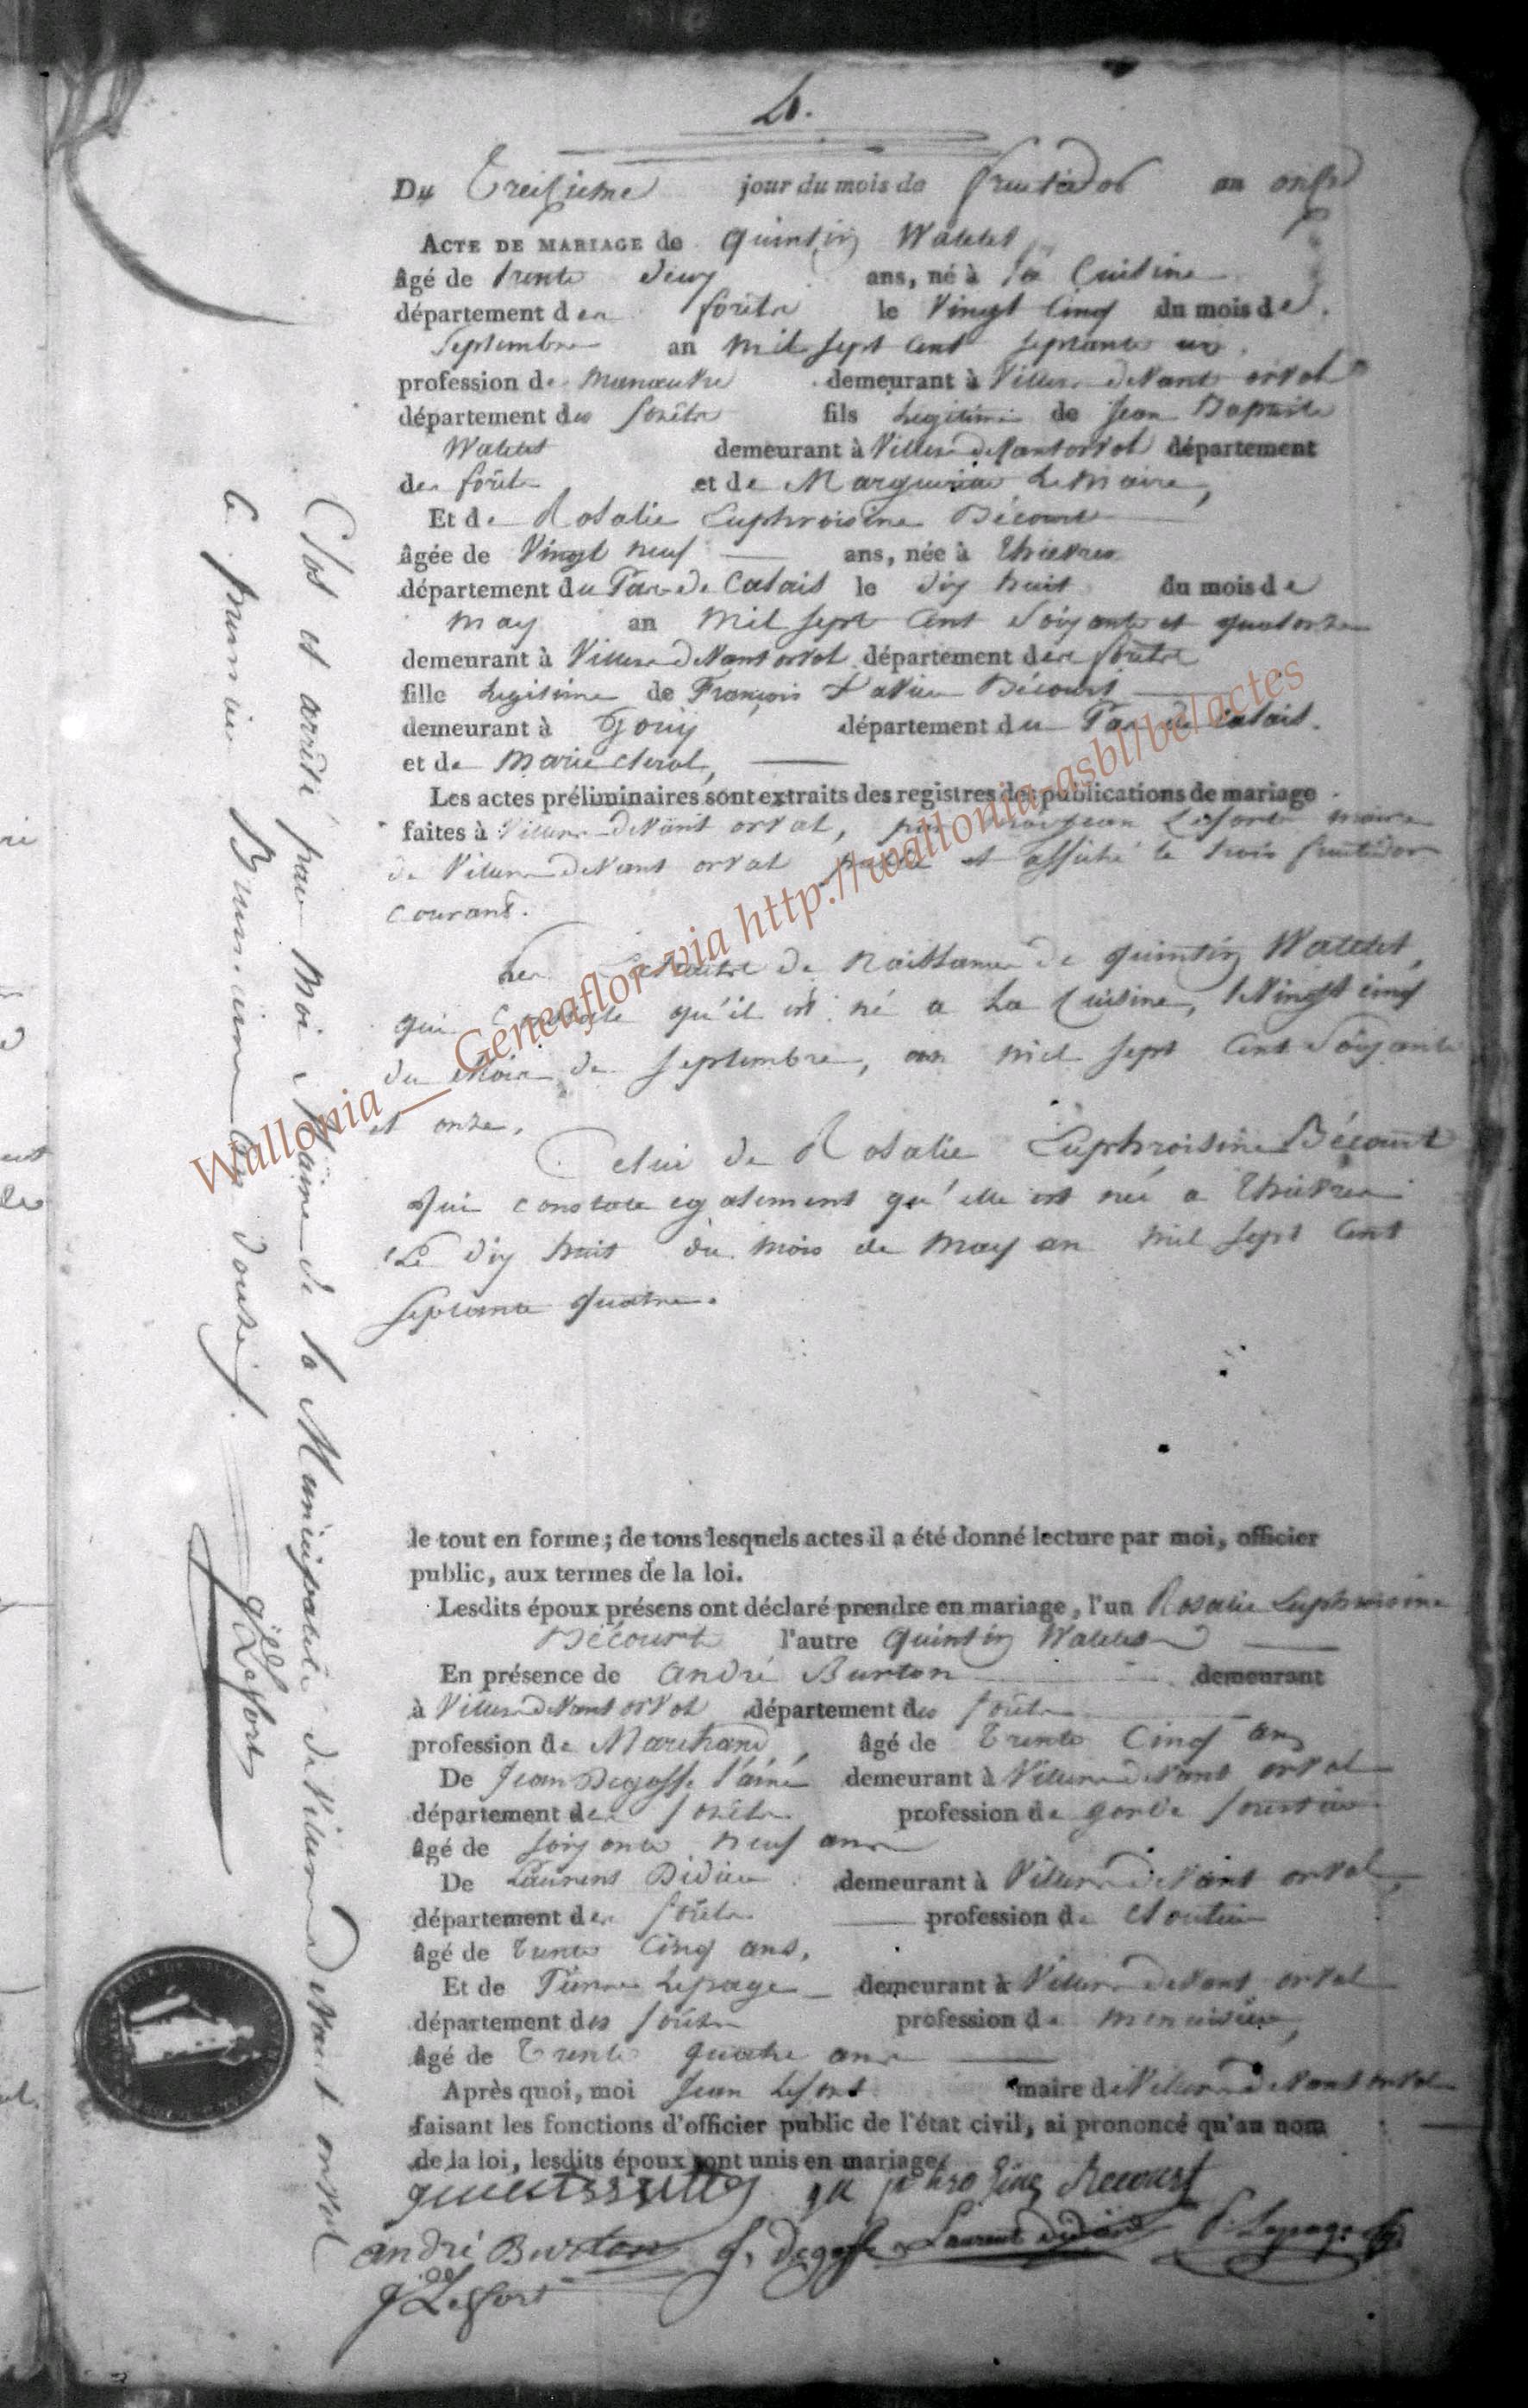 4.
Du Treizieme jour du mois de fructidor an onze
ACTE DE MARIAGE de quintin Watelet
âgé de trente deux ans, né à la Cuisine
département des forêts le Vingt Cinq du mois de
Septembre an mil sept cent septante un
profession de manœuvre demeurant à Villers devant orval
département des forêts fils legitime de Jean Baptiste
Watelet demeurant à Villers devant orval département
des forêts et de Marguerite Lemaire,
Et de Rosalie Euphroisine Bécourt
âgée de Vingt neuf ans, née à thievres
département du Pas de Calais le dix huit du mois de
may an mil sept cent soixante et quatorze
demeurant à Villers devant orval département des forêts
fille legitime de François Xavier Bécourt
demeurant à Gouy département du Pas de Calais.
et de Marie Cleral,
Les actes préliminaires sont extraits des registres des publications de mariage
faites à Villers devant orval, par Jean Lefort maire
de Villers devant orval et affiché le trois fructidor
courant.
Les de Naissance de quintin Watelet,
qui Constate qu'il est né a La Cuisine, le Vingt cinq
du Mois de septembre, an mil sept cent soixante
et onze.
Celui de Rosalie Euphroisine Bécourt
qui constate egalement qu'elle est née a thievres
Le dix huit du mois de may an mil sept cent
septante quatre.
le tout en forme ; de tous lesquels actes il a été donné lecture par moi, officier
public, aux termes de la loi.
Lesdits époux présens ont déclaré prendre en mariage, l'un Rosalie Euphroisine
Bécourt l'autre quintin Watelet
En présence de andré Burton demeurant
à Villers devant orval département des forêts
profession de Marchand, âgé de trente Cinq ans
De Jean Degosse l'ainé demeurant à Villers devant orval
département des forêts profession de garde forestier
âgé de soixante neuf ans
De Laurent Didier demeurant à Villers devant orval,
département des forêts profession de cloutier
âgé de trente Cinq ans.
Et de Pierre Lepage demeurant à Villers devant orval
département des forêts profession de menuisier,
âgé de trente quatre ans
Après quoi, moi Jean Lefort maire de Villers devant orval
faisant les fonctions d'officier public de l'état civil, ai prononcé qu'au nom
de la loi, lesdits époux sont unis en mariage.
Becourt
andré Burton J. Degosse Laurent didier P. Lepage
J Lefort
Clos et arrêté par Moi Maire de la Municipalité de Villers Devant orval
le premier Brumaire an douze.
J Lefort
Wallonia __ Geneaflor via http://wallonia-asbl/be/actes